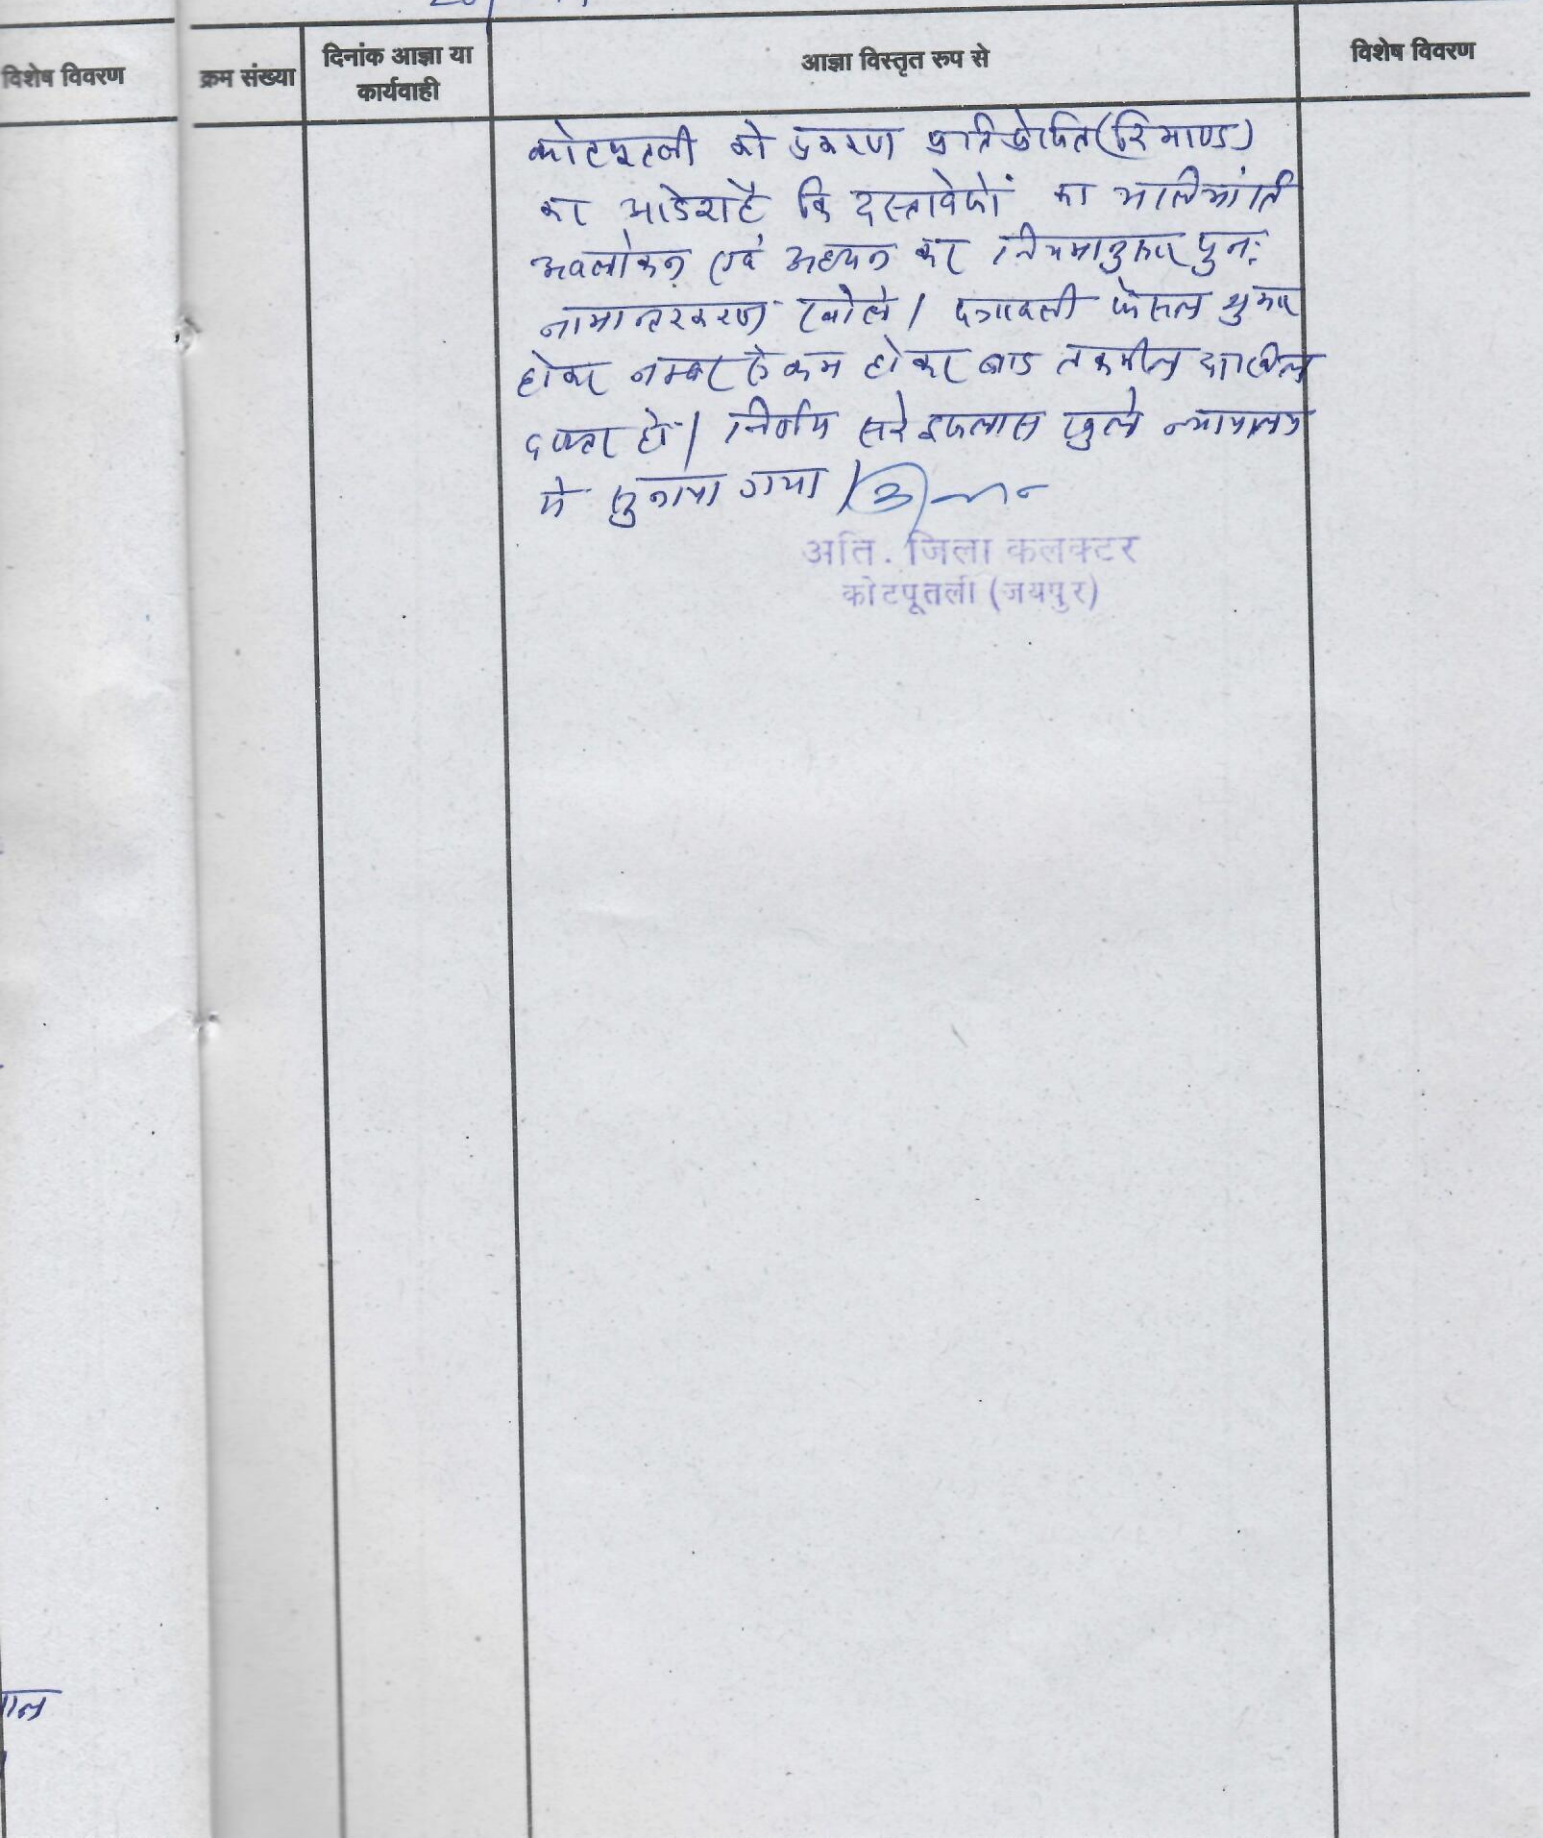 विशेष विवरण
क्रम संख्या
दिनांक आज्ञा या
कार्यवाही
आज्ञा विस्तृत रुप से
विशेष विवरण
कोटपूतली को प्रकरण प्रतिप्रेषित (रिमाण्ड)
का आदेश है कि दस्तावेजों का भलिभांति
अवलोकन एवं अध्यन कर नियमानुसार पुनः
नामान्तरकरण खोले। पत्रावली फैसल शुमार
होकर नम्बर से कम होकर बाद तकमील दाखिल
दफ्तर हो। निर्णय सरे इजलास खुले न्यायालय
मे सुनाया गया।
अति. जिला कलक्टर
कोटपूतली (जयपुर)